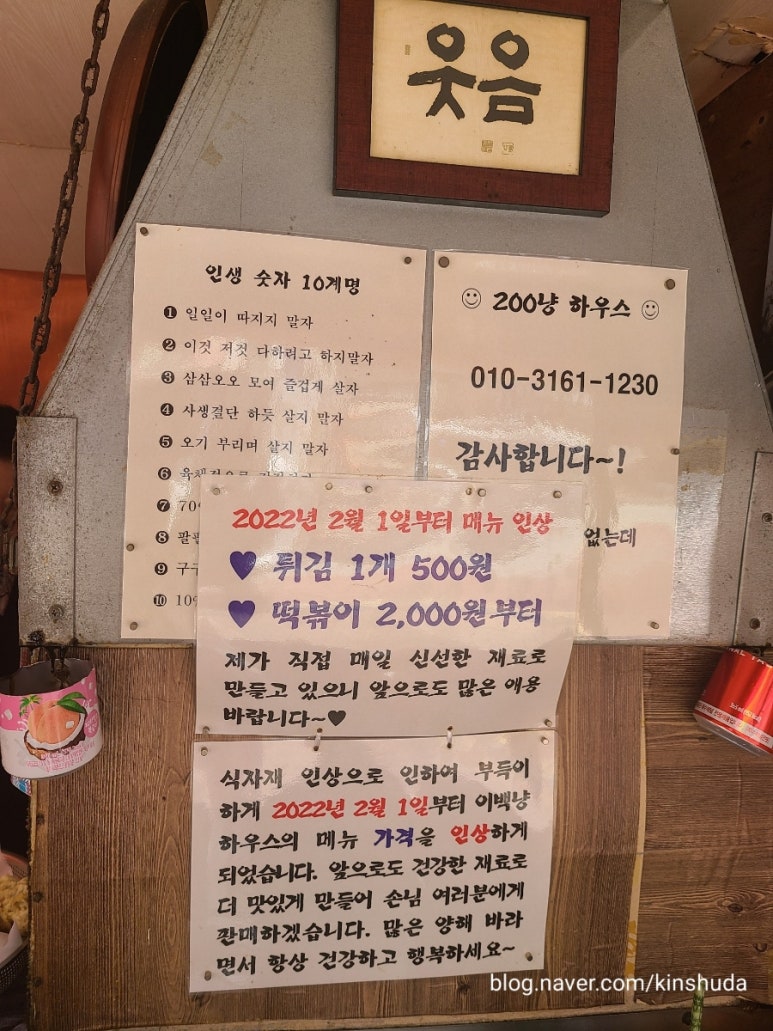 웃음
인생 숫자 10계명
❶ 일일이 따지지 말자
❷ 이것 저것 다하려고 하지말자
❸ 삼삼오오 모여 즐겁게 살자
❹ 사생결단 하듯 살지 말자
❺ 오기 부리며 살지 말자
❻
❼ 70
❽ 팔
❾ 구구
❿ 10
☺ 200냥 하우스 ☺
010-3161-1230
감사합니다~!
없는데
2022년 2월 1일부터 메뉴 인상
♥ 튀김 1개 500원
♥ 떡볶이 2,000원부터
제가 직접 매일 신선한 재료로
만들고 있으니 앞으로도 많은 애용
바랍니다~♥
식자재 인상으로 인하여 부득이
하게 2022년 2월 1일부터 이백냥
하우스의 메뉴 가격을 인상하게
되었습니다. 앞으로도 건강한 재료로
더 맛있게 만들어 손님 여러분에게
판매하겠습니다. 많은 양해 바라
면서 항상 건강하고 행복하세요~
blog.naver.com/kinshuda